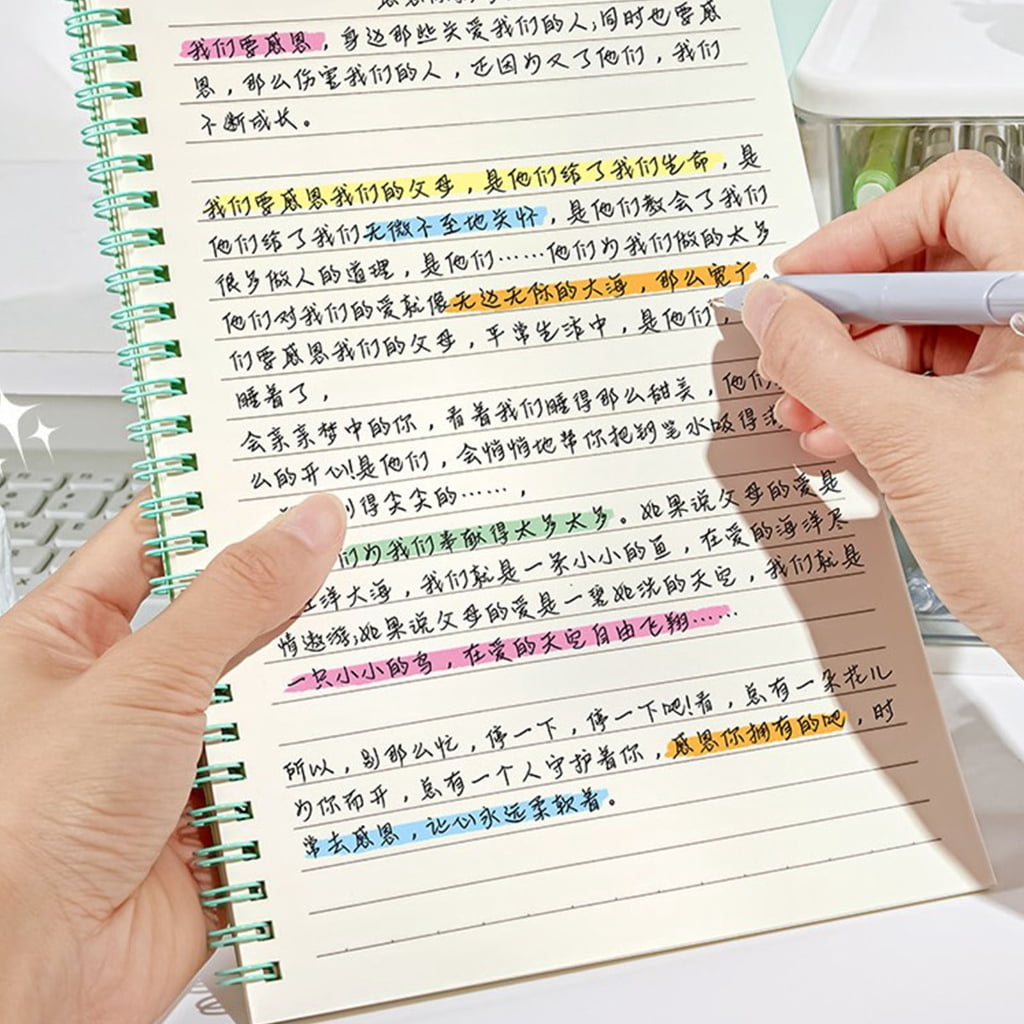 我们要感恩，身边那些关爱我们的人，同时也要感
恩，那么伤害我们的人，还因为又了他们，我们
不断成长。
我们要感恩我们的父母，是他们给了我们生命，是
他们给了我们无微不至地关怀，是他们教会了我们
很多做人的道理，是他们……他们为我们做的太多
他们对我们的爱就像无边无际的大海，那么宽广。
们要感恩我们的父母，平常生活中，是他们，
睡着了，
会亲亲梦中的你，看着我们睡得那么甜美，他们
么的开心!是他们，会悄悄地帮你把钢笔水吸得
得尖尖的……，
们为我们奉献得太多太多。如果说父母的爱是
洋大海，我们就是一条小小的鱼，在爱的海洋尽
情遨游;如果说父母的爱是一碧如洗的天空，我们就是
一只小小的鸟，在爱的天空自由飞翔……
所以，别那么忙，停一下，停一下吧!看，总有一朵花儿
为你而开，总有一个人守护着你，感恩你拥有的吧，时
常去感恩，让心永远柔软着。